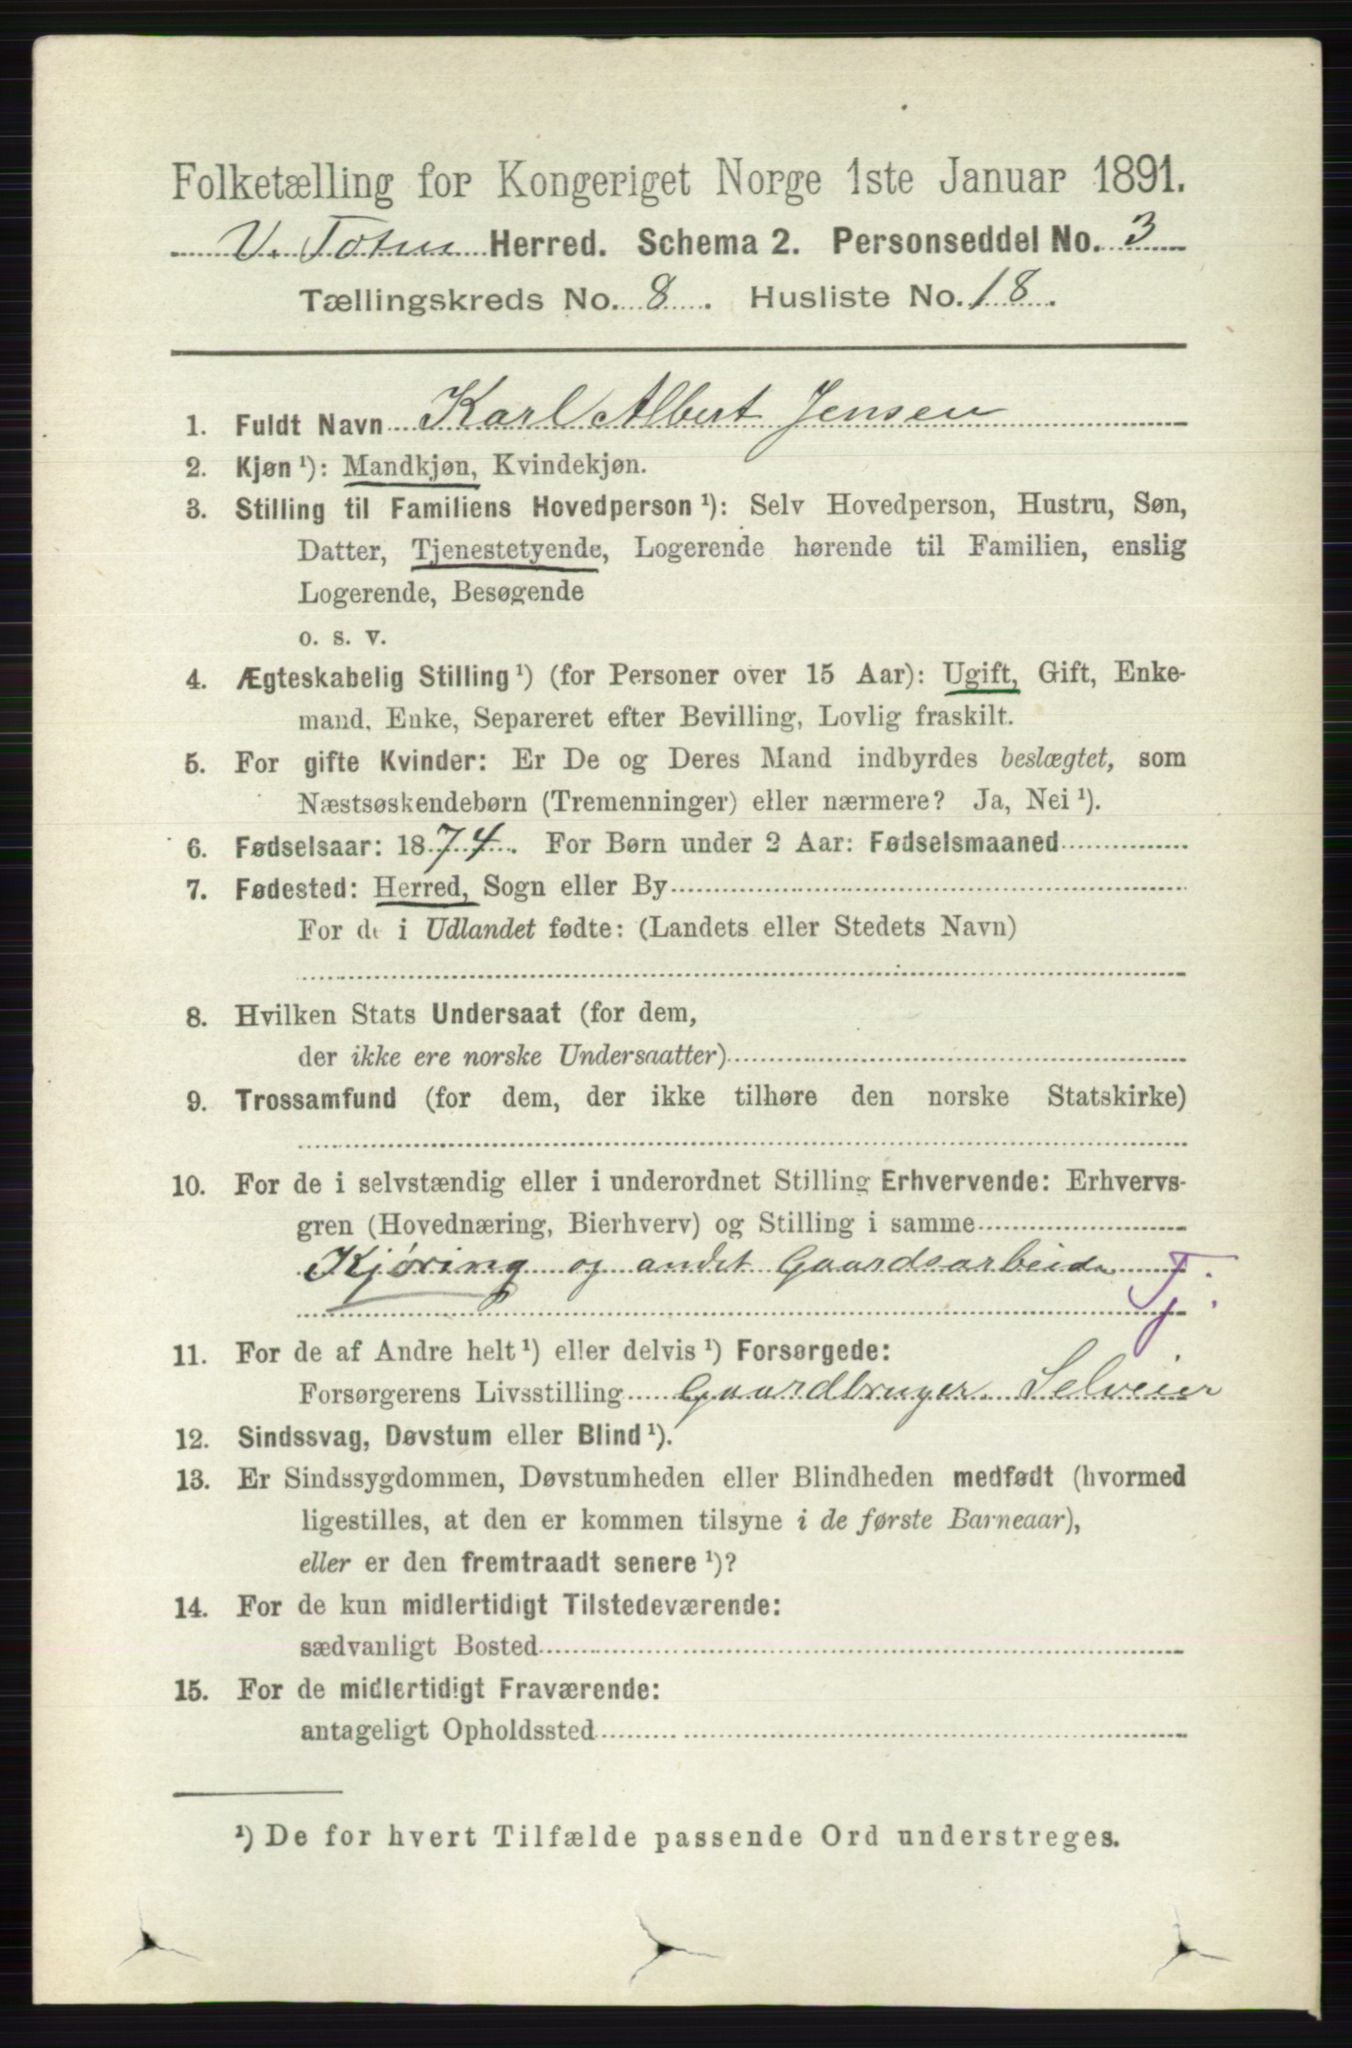 Folketælling for Kongeriget Norge 1ste Januar 1891.
V. Toten Herred. Schema 2. Personseddel No. 3
Tællingskreds No. 8. Husliste No. 18.
1. Fuldt Navn Karl Albert Jensen
2. Kjøn¹): Mandkjøn, Kvindekjøn.
3. Stilling til Familiens Hovedperson¹): Selv Hovedperson, Hustru, Søn,
Datter, Tjenestetyende, Logerende hørende til Familien, enslig
Logerende, Besøgende
o. s. v.
4. Ægteskabelig Stilling¹) (for Personer over 15 Aar): Ugift, Gift, Enke-
mand, Enke, Separeret efter Bevilling, Lovlig fraskilt.
5. For gifte Kvinder: Er De og Deres Mand indbyrdes beslægtet, som
Næstsøskendebørn (Tremenninger) eller nærmere? Ja, Nei¹).
6. Fødselsaar: 1874. For Børn under 2 Aar: Fødselsmaaned
7. Fødested: Herred, Sogn eller By
For de i Udlandet fødte: (Landets eller Stedets Navn)
8. Hvilken Stats Undersaat (for dem,
der ikke ere norske Undersaatter)
9. Trossamfund (for dem, der ikke tilhøre den norske Statskirke)
10. For de i selvstændig eller i underordnet Stilling Erhvervende: Erhvervs-
gren (Hovednæring, Bierhverv) og Stilling i samme
Kjøring og andet Gaardsarbeide Tj.
11. For de af Andre helt¹) eller delvis¹) Forsørgede:
Forsørgerens Livsstilling Gaardbruger. Selveier
12. Sindssvag, Døvstum eller Blind¹).
13. Er Sindssygdommen, Døvstumheden eller Blindheden medfødt (hvormed
ligestilles, at den er kommen tilsyne i de første Barneaar),
eller er den fremtraadt senere¹)?
14. For de kun midlertidigt Tilstedeværende:
sædvanligt Bosted
15. For de midlertidigt Fraværende:
antageligt Opholdssted
¹) De for hvert Tilfælde passende Ord understreges.